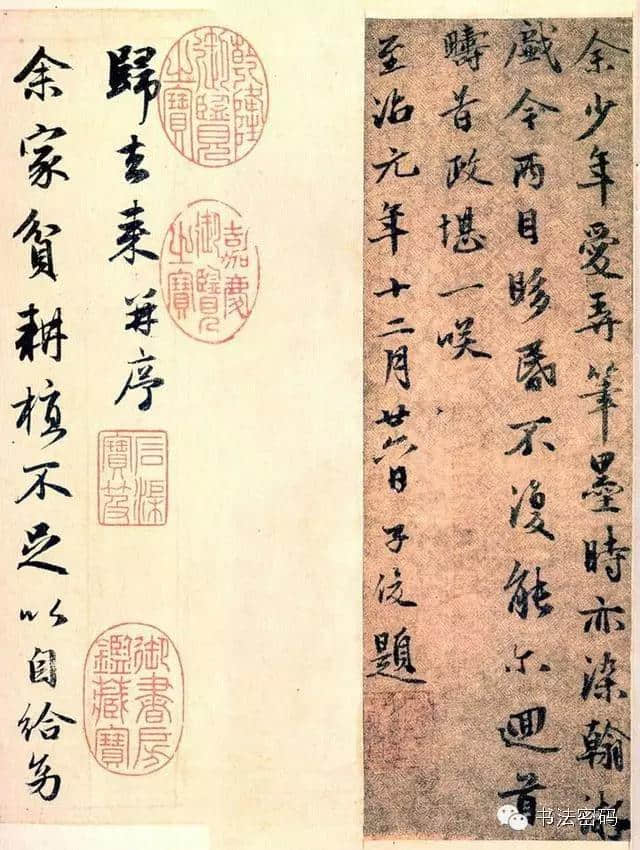 余少年愛弄筆墨時亦染翰游
戲今兩目眵昏不復能尔迴首
疇昔政堪一咲
至治元年十二月廿六日子俊題
乾隆御覽之寶
嘉慶御覽之寶
歸去來并序
石渠寶笈
御書房鑑藏寶
余家貧耕植不足以自給幼
书法密码